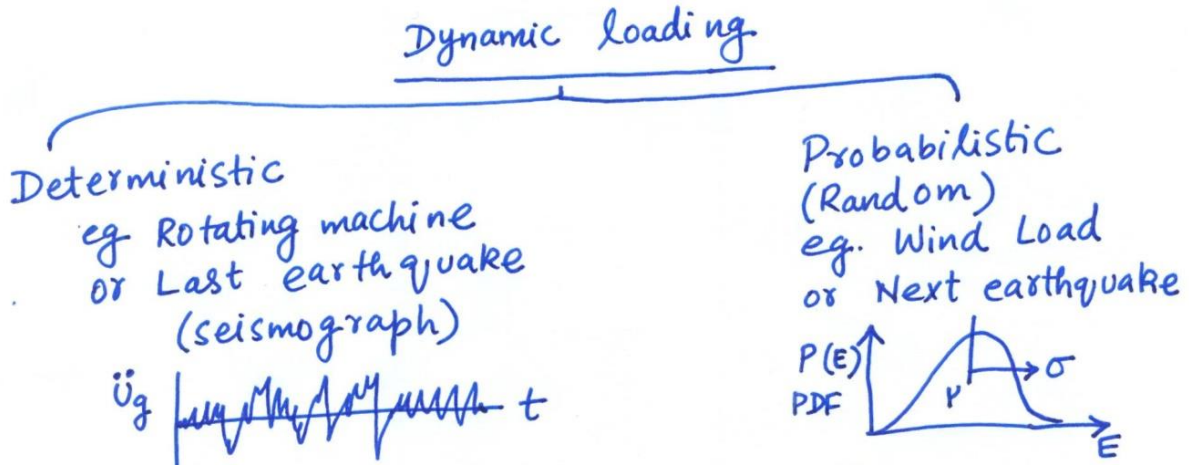 Dynamic loading
Deterministic
eg Rotating machine
or Last earthquake
(seismograph)
Üg
t
Probabilistic
(Random)
eg. Wind Load
or Next earthquake
P(E)
PDF
μ
σ
E